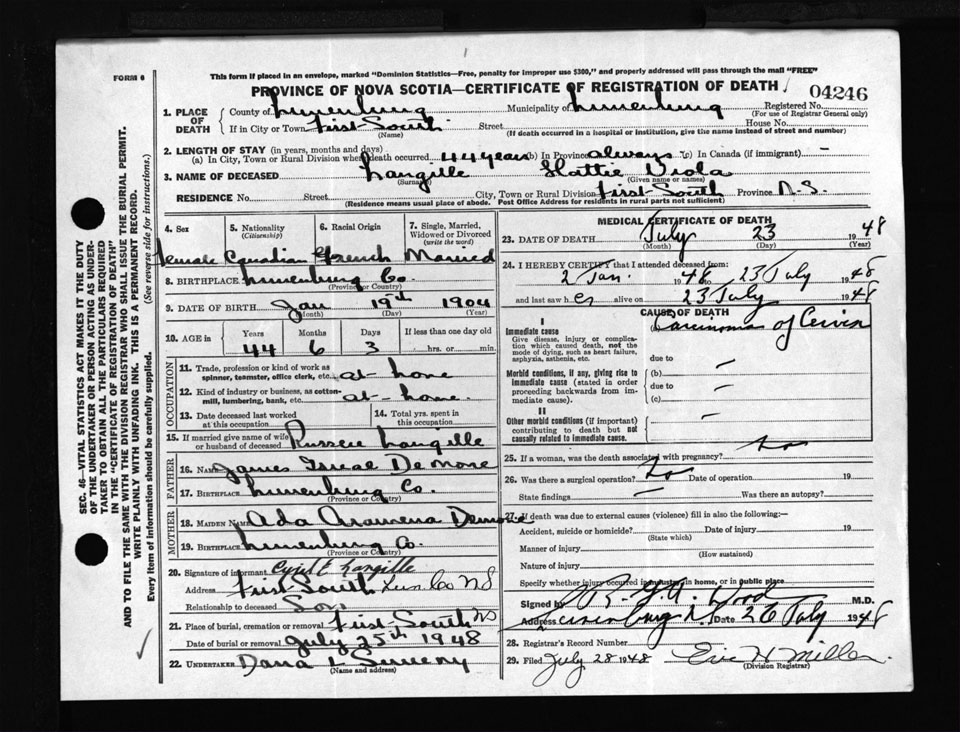 This form if placed in an envelope, marked "Dominion Statistics—Free, penalty for improper use $300," and properly addressed will pass through the mail "FREE"
FORM 6
PROVINCE OF NOVA SCOTIA—CERTIFICATE OF REGISTRATION OF DEATH
04246
1. PLACE OF DEATH County of Lunenburg Municipality of Lunenburg Registered No.
(For use of Registrar General only)
If in City or Town First South Street House No.
(Name) (If death occurred in a hospital or institution, give the name instead of street and number)
2. LENGTH OF STAY (in years, months and days)
(a) In City, Town or Rural Division where death occurred 44 years (b) In Province always (c) In Canada (if immigrant) —
3. NAME OF DECEASED Langille Hattie Viola
(Surname) (Given name or names)
RESIDENCE No. Street City, Town or Rural Division First South Province N.S.
(Residence means usual place of abode. Post Office Address for residents in rural parts not sufficient)
4. Sex 5. Nationality (Citizenship) 6. Racial Origin 7. Single, Married, Widowed or Divorced (write the word)
Female Canadian French Married
8. BIRTHPLACE Lunenburg Co.
(Province or Country)
9. DATE OF BIRTH Jan 19th 1904
(Month) (Day) (Year)
10. AGE in Years Months Days If less than one day old
44 6 3 hrs. or min.
OCCUPATION
11. Trade, profession or kind of work as spinner, teamster, office clerk, etc. at-home
12. Kind of industry or business, as cotton-mill, lumbering, bank, etc. at-home.
13. Date deceased last worked at this occupation 14. Total yrs. spent in this occupation
15. If married give name of wife or husband of deceased Russell Langille
FATHER
16. NAME James Isreal DeMone
17. BIRTHPLACE Lunenburg Co.
MOTHER
18. MAIDEN NAME Ada Aramena Demone
19. BIRTHPLACE Lunenburg Co.
(Province or Country)
20. Signature of informant Cyril E Langille
Address First South Lun Co NS
Relationship to deceased Son
21. Place of burial, cremation or removal First South NS
Date of burial or removal July 25th 1948
22. UNDERTAKER Dana L Sweeny
(Name and address)
MEDICAL CERTIFICATE OF DEATH
23. DATE OF DEATH July 23 1948
(Month) (Day) (Year)
24. I HEREBY CERTIFY that I attended deceased from:
2 Jan. 1948 to 23 July 1948
and last saw her alive on 23 July 1948
CAUSE OF DEATH
I
Immediate cause Carcinoma of Cervix
Give disease, injury or complication which caused death, not the mode of dying, such as heart failure, asphyxia, asthenia, etc.
due to
Morbid conditions, if any, giving rise to immediate cause (stated in order proceeding backwards from immediate cause).
(b) —
due to —
(c)
II
Other morbid conditions (if important) contributing to death but not causally related to immediate cause. —
25. If a woman, was the death associated with pregnancy? No
26. Was there a surgical operation? No Date of operation 19
State findings — Was there an autopsy?
27. If death was due to external causes (violence) fill in also the following:—
Accident, suicide or homicide? Date of injury 19
(State which)
Manner of injury
(How sustained)
Nature of injury
Specify whether injury occurred in industry, in home, or in public place
Signed by Wood M.D.
Address Lunenburg N. Date 26 July 1948
28. Registrar's Record Number
29. Filed July 28 1948 Eric H Miller
(Division Registrar)
SEC. 46—VITAL STATISTICS ACT MAKES IT THE DUTY
OF THE UNDERTAKER OR PERSON ACTING AS UNDER-
TAKER TO OBTAIN ALL THE PARTICULARS REQUIRED
IN THE "CERTIFICATE OF REGISTRATION OF DEATH"
AND TO FILE THE SAME WITH THE DIVISION REGISTRAR WHO SHALL ISSUE THE BURIAL PERMIT.
WRITE PLAINLY WITH UNFADING INK. THIS IS A PERMANENT RECORD.
Every item of information should be carefully supplied. (See reverse side for instructions.)